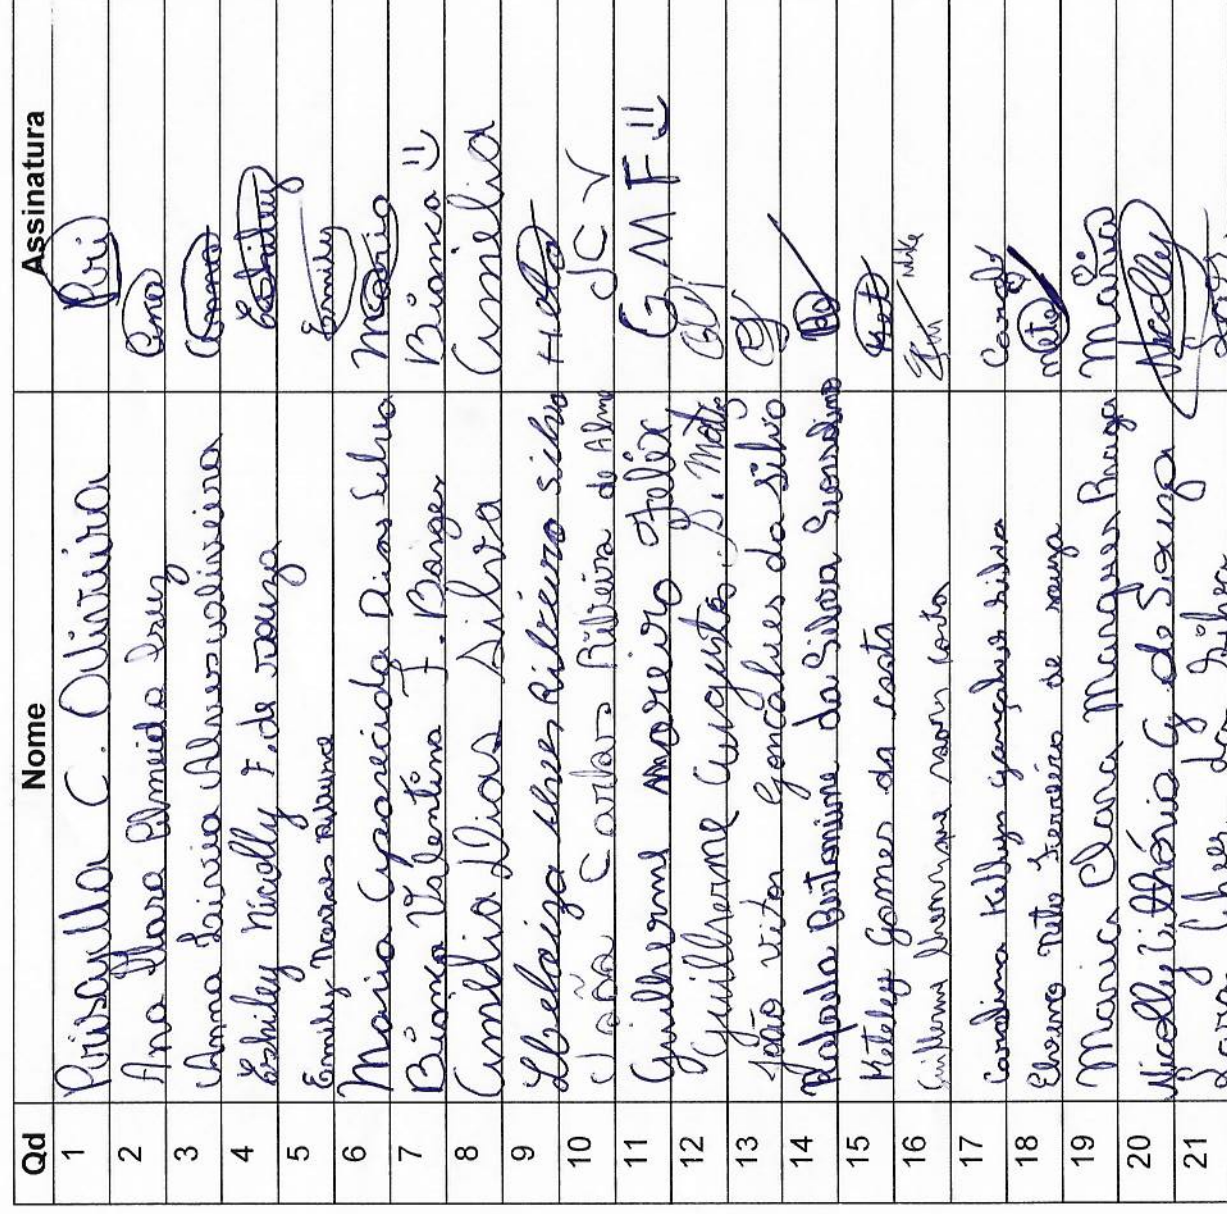 Qd Nome Assinatura
1 Prisylla C. Oliveira Pri
2 Ana Flara Almeida Ana
3 Anna Lívia Alves oliveira Anna
4 Eshiley Nicolly F. de souza Eshiley
5 Emily Emily
6 Maria Aparecida Dias Silva Maria
7 Bianca Valentina F. Borges Bianca
8 Amélia Dias Silva Amélia
9 Heloiza Alves Ribeiro silva Helo
10 João Carlos Ribeiro de Alme JCV
11 Guilherme moreira Felix G M F
12 Guilherme Augusto S. Matos
13 João Vitor Gonçalves da silva
14 Rafaela Antonine da Silva
15 Keteley Gomes da costa Ket
16 Guilherme costa
17 Carolina Kellyn gonçalves silva Carol
18 Neto Ferreira de souza neto
19 Maria Clara Marques Braga Maria
20 Nicolly Vitthória G. de Souza Nicolly
21